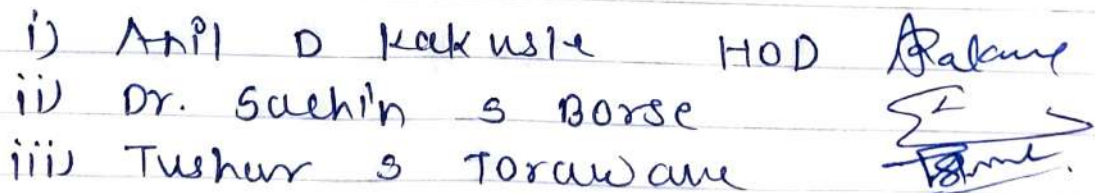 i) Anil D Kakusle HOD
ii) Dr. Sachin S Borse
iii) Tushar S Torawane